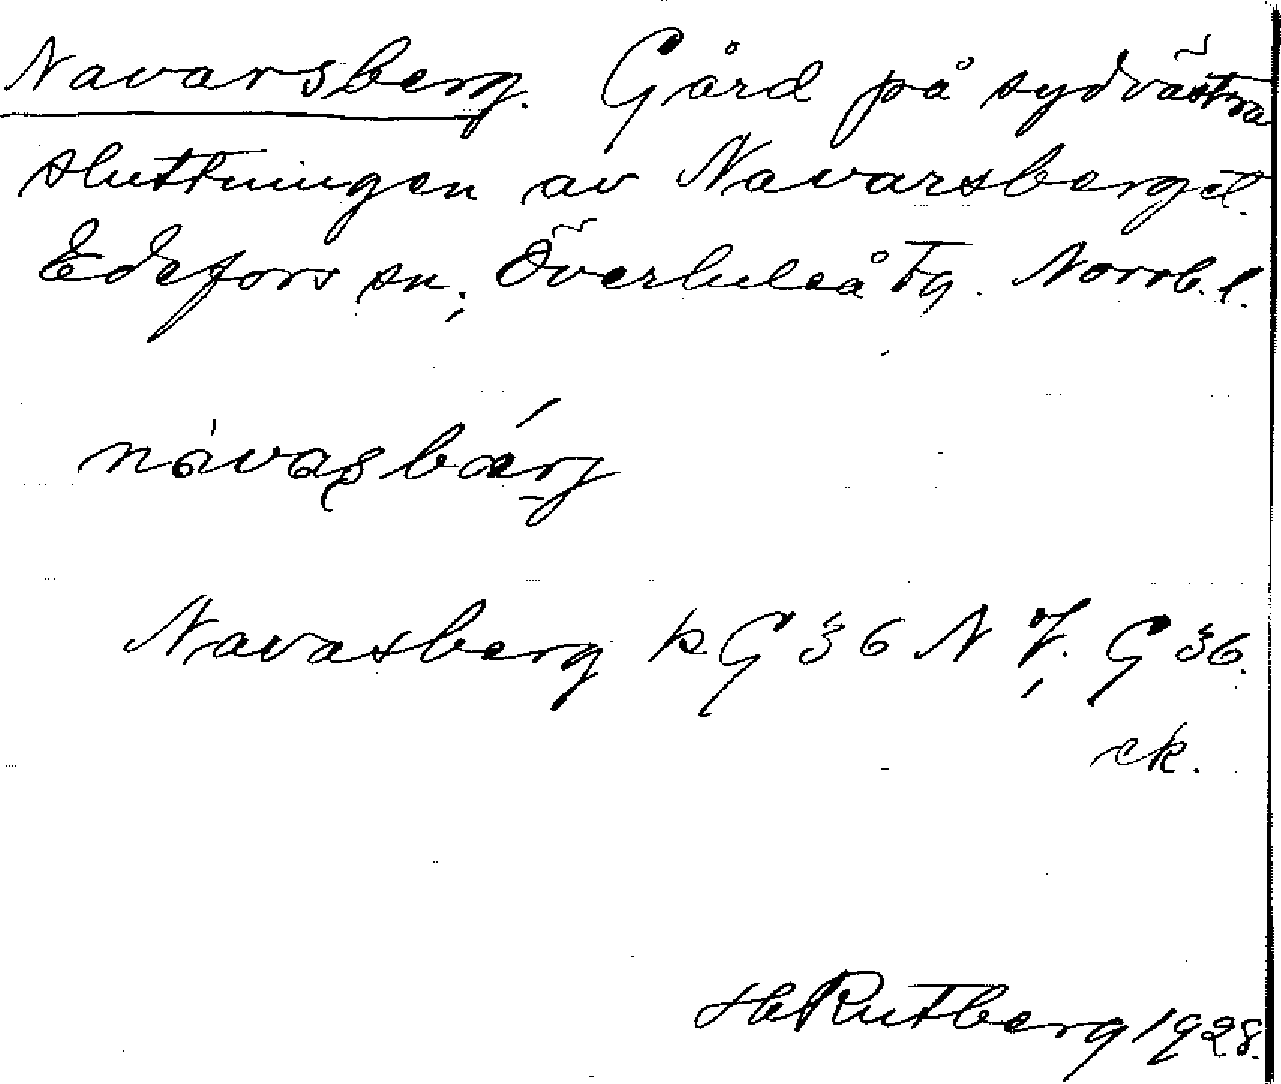 Navarsberg. Gård på sydvästra
sluttningen av Navarsberget.
Edefors sn, Överluleå tg. Norrb. l.
nàvasbǽrj
Navasberg
ek.
H Rutberg 1928.